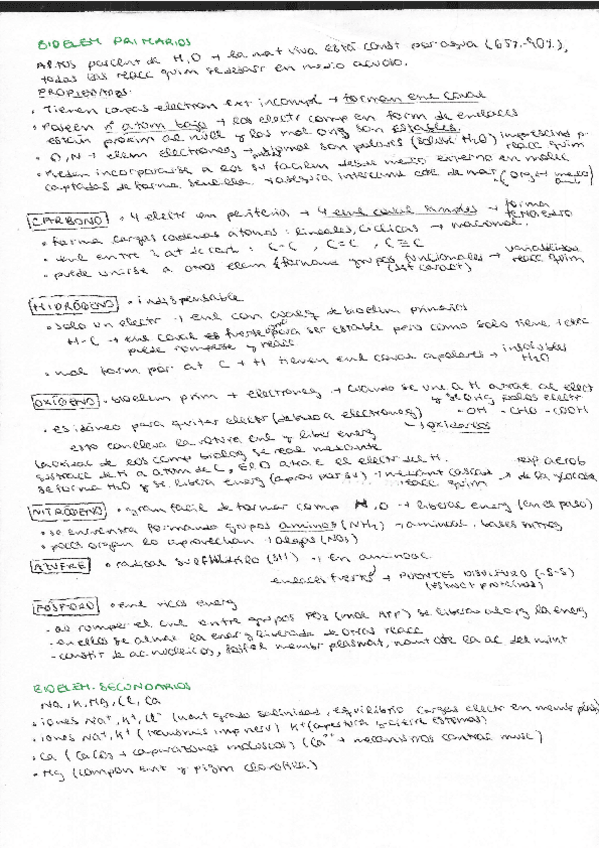 BIOELEM PRIMARIOS
percent de H, O → la mat viva está const por agua (65%-90%),
todas las reacc quim se desarr en medio acuoso.
PROPIEDADES.
• Tienen capas electron ext incompl → forman enl coval
• Poseen nº atom bajo → los electr comp en form de enlaces
están próxim al nucl y las mol org son estables.
• O, N → elem electroneg → molec son polares (soluble H2O) imprescind p. reacc quim
• Pueden incorporarse a los sv facilm desde medio externo en molec
captadas de forma sencilla.
CARBONO • 4 electr en periferia → 4 enl coval simples → forma tetraedro
• forma largas cadenas átomos: lineales, cíclicas → macromol.
• enl entre at de carb: C-C, C=C, C≡C
• puede unirse a otros elem formando grupos funcionales → variabilidad reacc quim
(dist caract)
HIDRÓGENO • indispensable
• solo un electr → enl con cualq de bioelem primarios
H-C → enl coval es fuerte para ser estable pero como solo tiene 1 elec
puede romperse y reacc
• mol form por at C + H tienen enl coval apolares → insolubles H2O
OXÍGENO • bioelem prim + electroneg → cuando se une a H atrae al elect
-OH -CHO -COOH
• es idóneo para quitar electr (debido a electroneg)
esto conlleva la rotura enl y liber energ
La oxidac de los comp biolog se real mediante
sustracc de H a atom de C, El O atrae el electr del H. resp aerob
se forma H2O y se libera energ
de la glucosa
NITRÓGENO • gran facil de formar comp H, O → liberac energ (en el paso)
• se encuentra formando grupos aminos (NH2) → aminoac, bases nitrog
(NO3)
AZUFRE • radical sulfhidrilo (SH) → en aminoac
enlaces fuertes → PUENTES DISULFURO (-S-S)
(estruct proteinas)
FÓSFORO • enl ricos energ
• al romper el enl entre grupos PO3 (mol ATP) se libera la energ
• en ellos se almac la energ liberada de otras reacc
• constit de ac nucleicos, fosfol membr plasmat,
BIOELEM. SECUNDARIOS
Na, K, Mg, Cl, Ca
• iones Na+, K+, Cl- (mant grado salinidad, equilibrio cargas electr en memb plas)
• iones Na+, K+ (transmis imp nerv) K+ (apertura y cierre estomas)
• Ca (CaCO3 → caparazones moluscos) (Ca2+ → mecanismos contrac musc)
• Mg (compon pigm clorofila.)